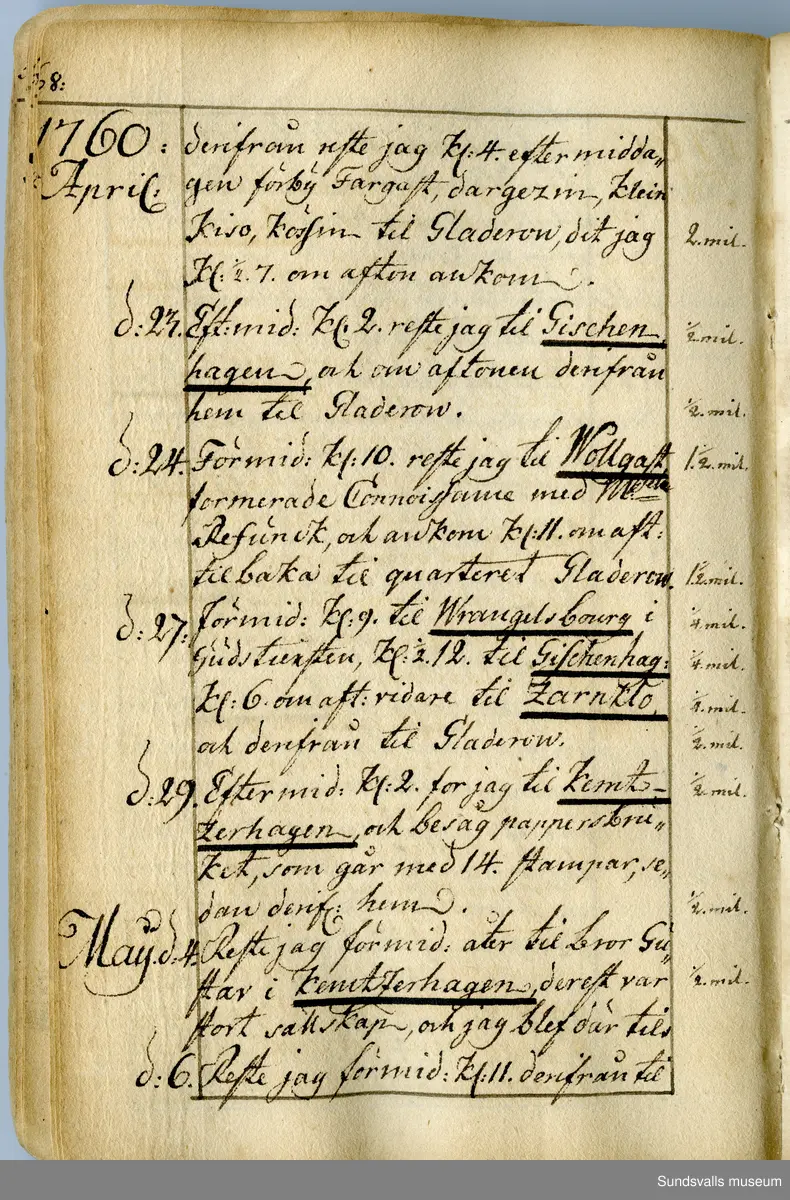 68:
1760: derifrån reste jag Kl: 4. eftermidda„
April: gen förbÿ Fargast, dargezin, Klein
Kiso, Kössin til Gladerow, dit jag 2. mil.
Kl: ½. 7. om afton ankom.
d: 23. Eft:mid: Kl. 2. reste jag til Gischen, ½ mil.
hagen, och om aftonen derifrån
hem til Gladerow. ½. mil.
d: 24. Förmid: Kl: 10. reste jag til Wollgast 1½. mil.
formerade Connoissance med
Refünck, och ankom Kl: 11. om aft:
tilbaka til quarteret Gladerow. 1½. mil.
d: 27: förmid: Kl: 9. til Wrangelsbourg i ¼. mil.
Gudstiensten, Kl: ½. 12. til Gischenhag: ¼. mil.
Kl: 6. om aft: vidare til Zarnkto, ¼. mil.
och derifrån til Gladerow. ½. mil.
d: 29. Eftermid: Kl: 2. for jag til Kemt- ½. mil.
zerhagen, och besåg pappersbru„
ket, som går med 14. stampar, se„
dan derif: hem. ½. mil.
Maÿ. d: 4. Reste jag förmid: åter til bror Gu„
stav i Kemtzerhagen, derest var ½. mil.
stort sällskap, och jag blef där tils
d: 6. Reste jag förmid: Kl: 11. derifrån til
Sundsvalls museum